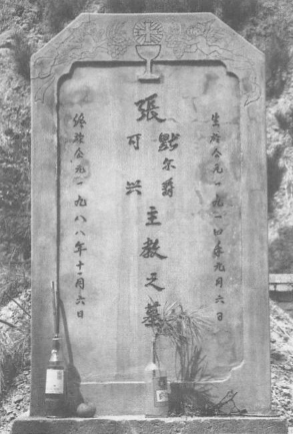 生於公元一九一四年元月六日
張
默尔爵
可兴
主教之墓
終於公元一九八八年十一月六日